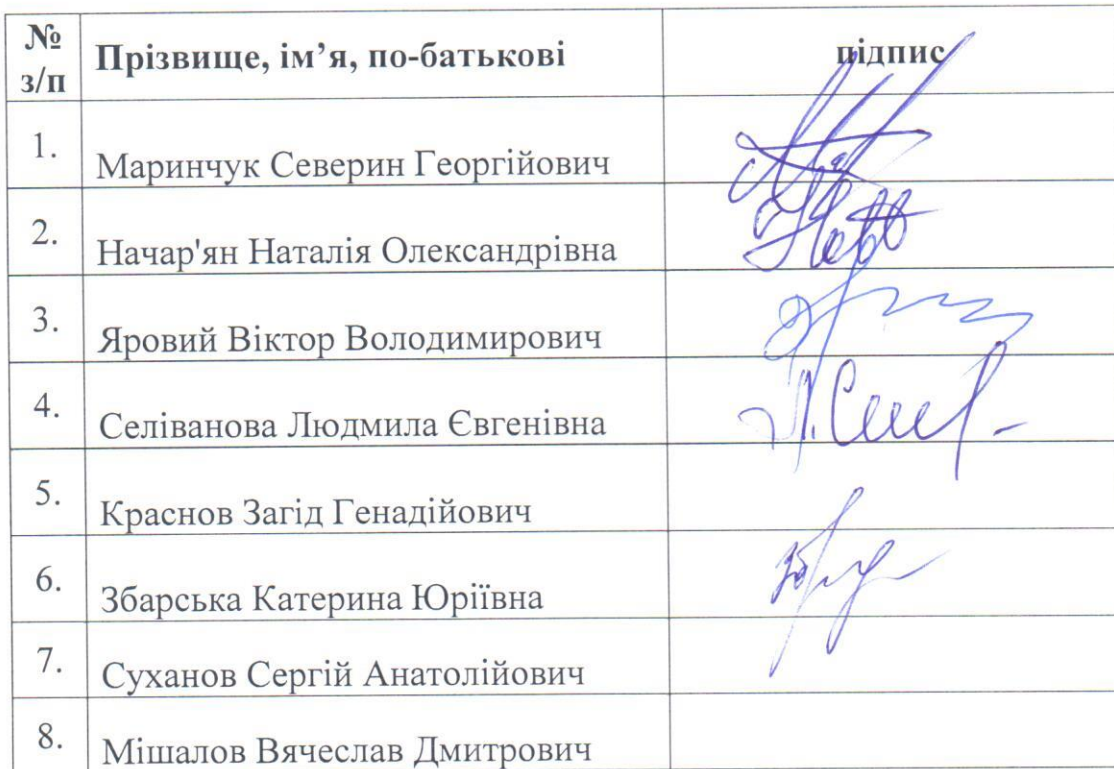 № з/п Прізвище, ім’я, по-батькові підпис
1. Маринчук Северин Георгійович
2. Начар'ян Наталія Олександрівна
3. Яровий Віктор Володимирович
4. Селіванова Людмила Євгенівна
5. Краснов Загід Генадійович
6. Збарська Катерина Юріївна
7. Суханов Сергій Анатолійович
8. Мішалов Вячеслав Дмитрович